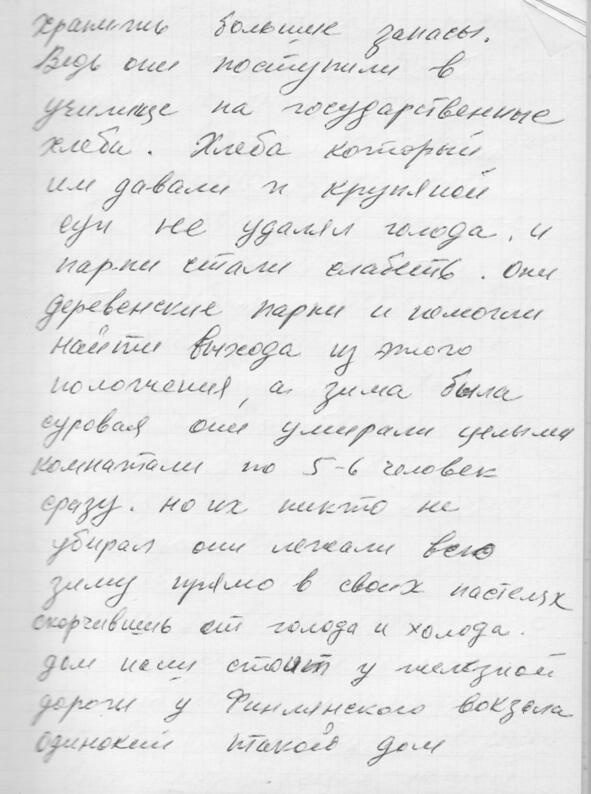 хранить большие запасы.
Ведь они поступили в
училище на государственные
хлеба. Хлеба который
им давали и крупяной
суп не удалял голода, и
парни стали слабеть. Они
деревенские парни и не могли
найти выхода из этого
положения, а зима была
суровая они умирали целыми
комнатами по 5-6 человек
сразу. но их никто не
убирал они лежали всю
зиму прямо в своих пастелях
скорчившись от голода и холода.
дом наш стоит у железной
дороги у Финлянского вокзала
одинокий такой дом